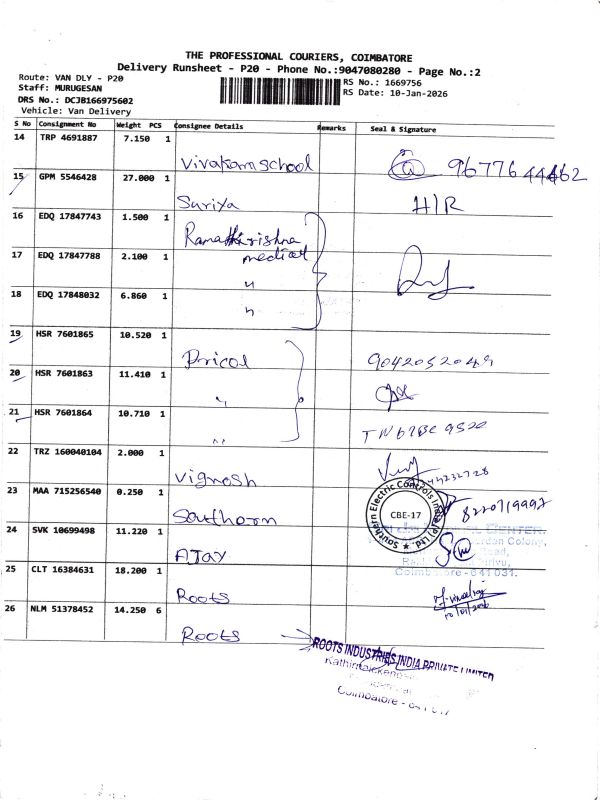 THE PROFESSIONAL COURIERS, COIMBATORE
Delivery Runsheet - P20 - Phone No.:9047080280 - Page No.:2
Route: VAN DLY - P20
Staff: MURUGESAN
DRS No.: DCJB166975602
Vehicle: Van Delivery
RS No.: 1669756
RS Date: 10-Jan-2026
S No Consignment No Weight PCS Consignee Details Remarks Seal & Signature
14 TRP 4691887 7.150 1
Vivakam school 9677644462
15 GPM 5546428 27.000 1
Suriya H/R
16 EDQ 17847743 1.500 1
Ramakrishna
medical
17 EDQ 17847788 2.100 1
"
18 EDQ 17848032 6.860 1
"
19 HSR 7601865 10.520 1
Pricol 9042052049
20 HSR 7601863 11.410 1
"
21 HSR 7601864 10.710 1
" TN67BC9520
22 TRZ 160040104 2.000 1
Vignesh
23 MAA 715256540 0.250 1
Southern 8220719992
Southern Electric Controls India (P) Ltd.
CBE-17
24 SVK 10699498 11.220 1
AJAY
Colony,
Road,
Coimbatore - 641 031.
25 CLT 16384631 18.200 1
Roots
10/01/2026
26 NLM 51378452 14.250 6
Roots
ROOTS INDUSTRIES INDIA PRIVATE LIMITED
Coimbatore - 641 017